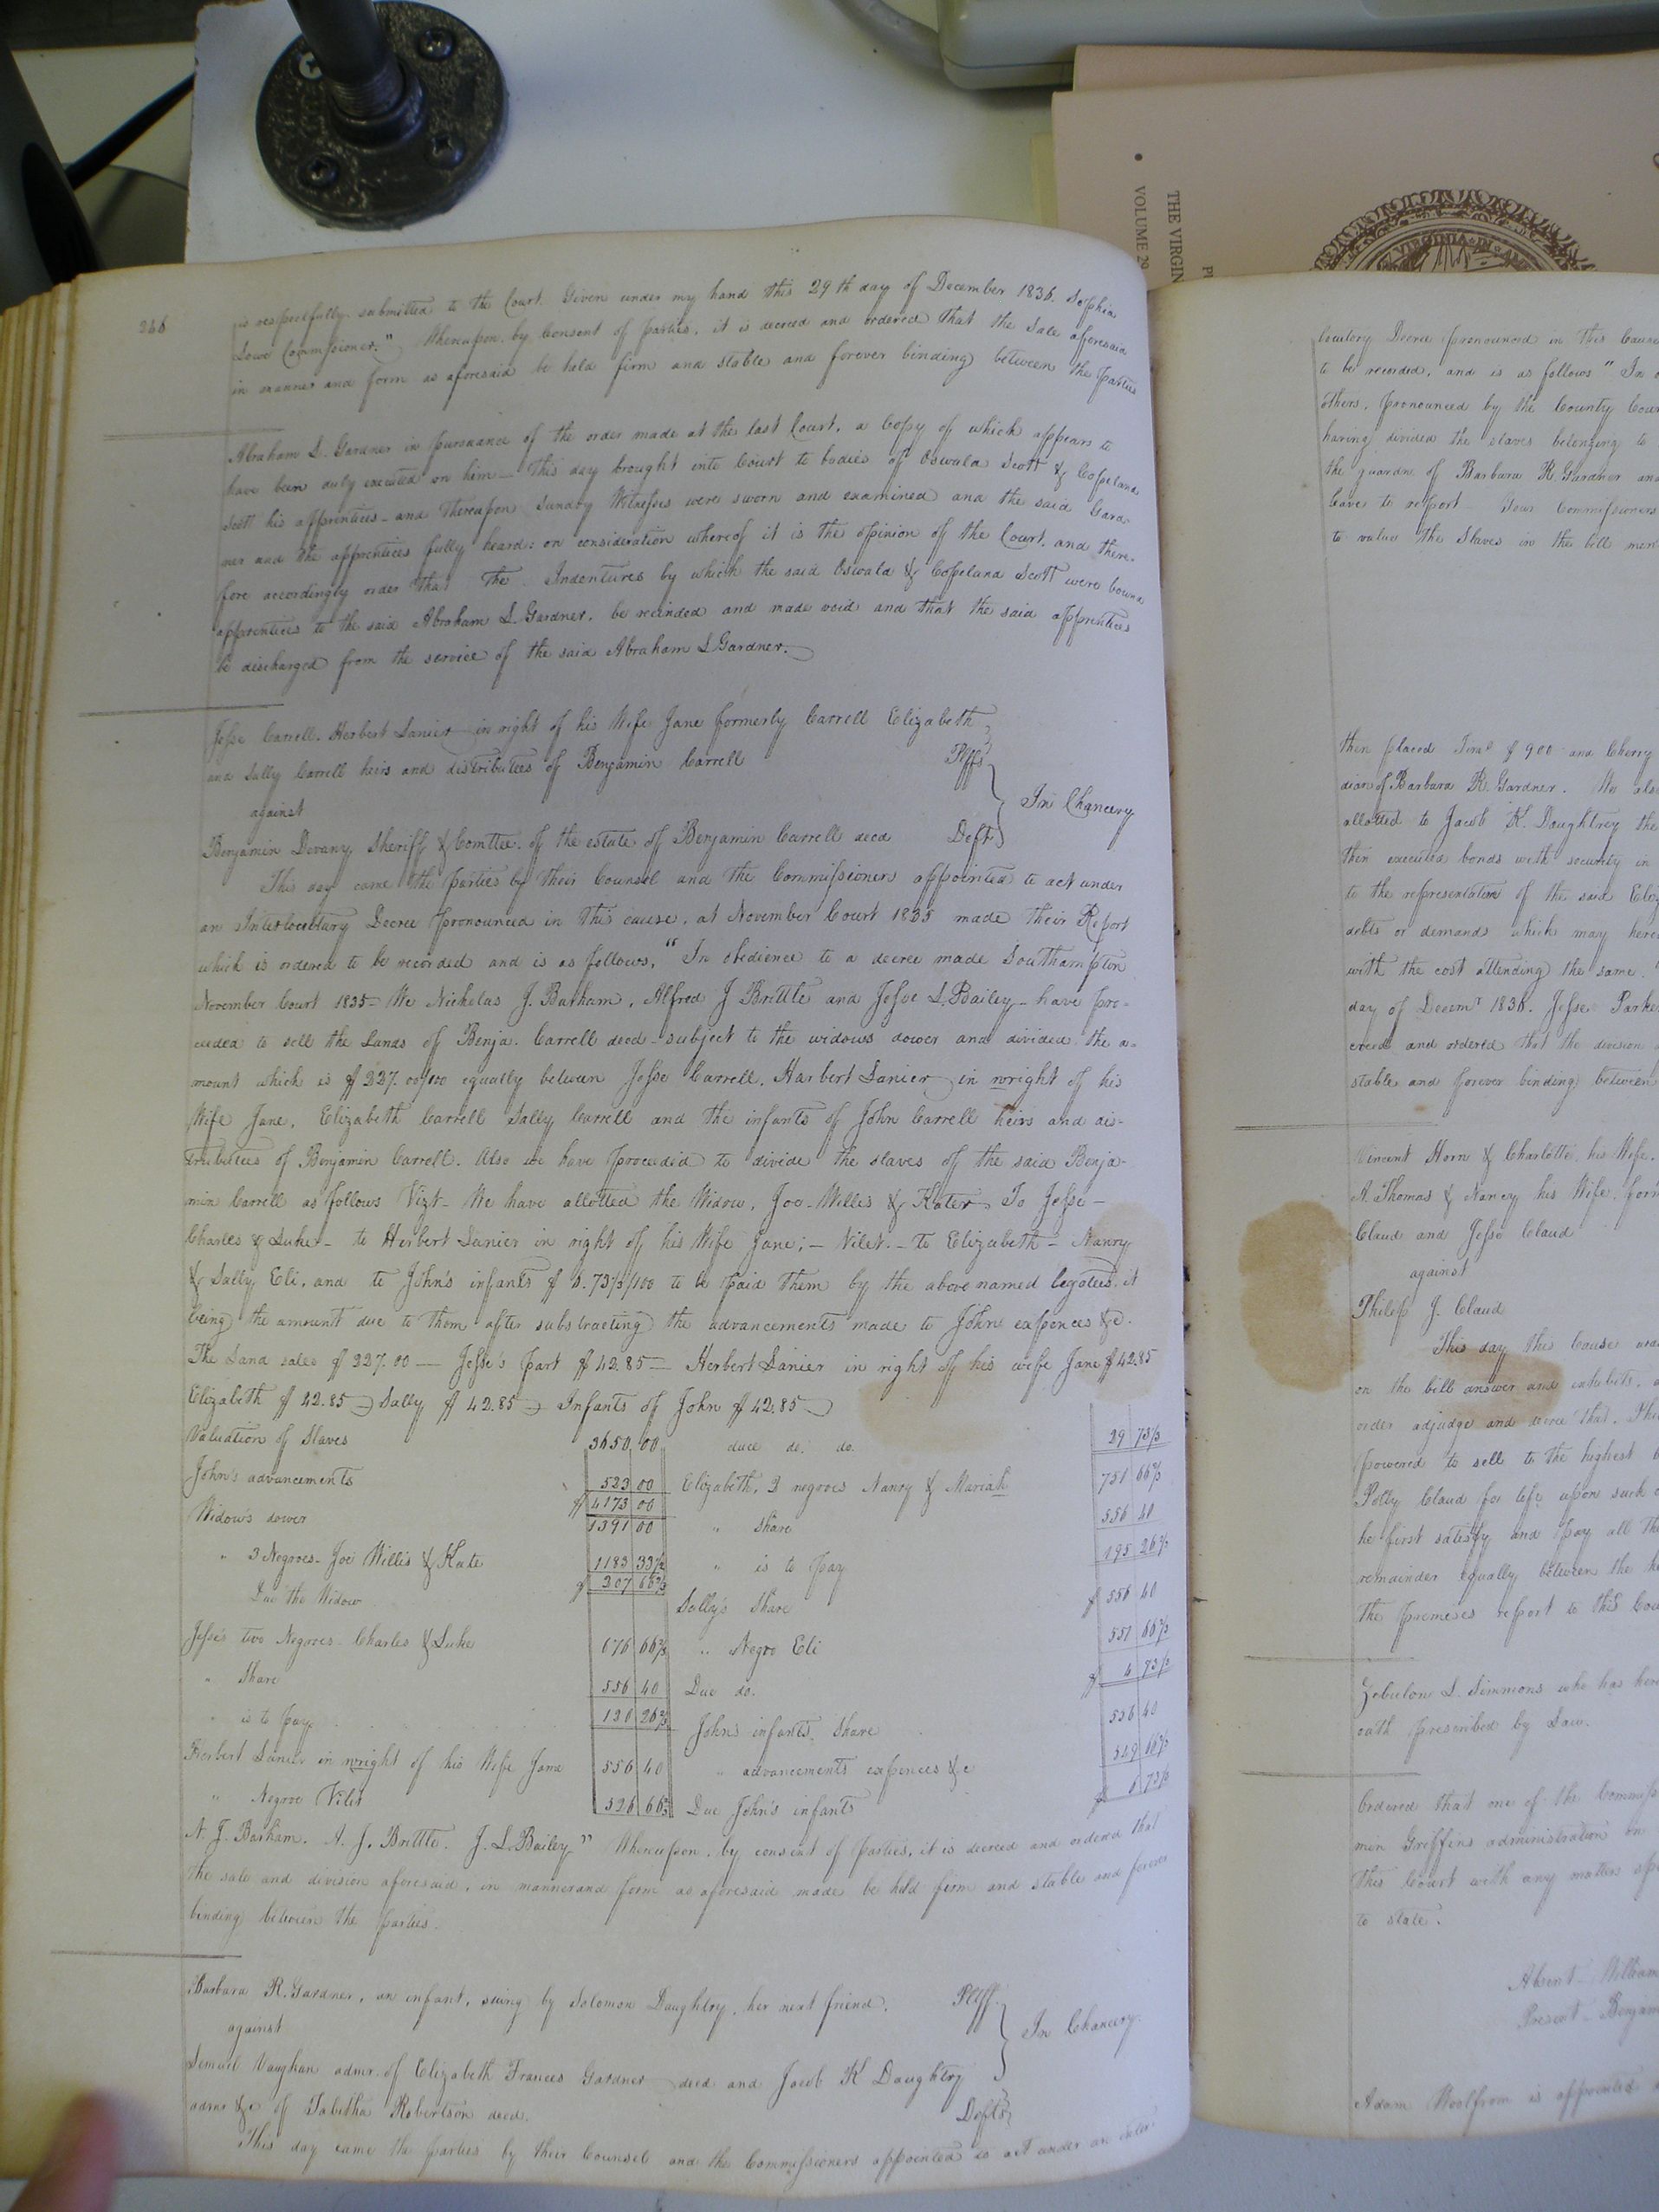 THE VIRGIN
VOLUME 29
VIRGINIA
246
is respectfully submitted to the Court. Given under my hand this 29th day of December 1836. Sophia
Lowe Commissioner." Whereupon by Consent of parties, it is decreed and ordered that the Sale aforesaid
in manner and form as aforesaid be held firm and stable and forever binding between the parties
Abraham L. Gardner in pursuance of the order made at the last Court, a Copy of which appears to
have been duly executed on him - This day brought into Court to bodies of Oswald Scott & Copeland
Scott his apprentices - and Thereupon Sundry Witnesses were sworn and examined and the said Gard-
ner and the apprentices fully heard: on consideration whereof it is the opinion of the Court, and there-
fore accordingly order that The Indentures by which the said Oswald & Copeland Scott were bound
apprentices to the said Abraham L. Gardner, be recinded and made void and that the said apprentices
be discharged from the service of the said Abraham L Gardner.
Jesse Carrell. Herbert Lanier in right of his Wife Jane formerly Carrell Elizabeth
and Sally Carrell heirs and distributees of Benjamin Carrell Plffs
against In Chancery
Benjamin Devany Sheriff & Comttee. of the estate of Benjamin Carrell decd Deft
This day came the parties by their Counsel and the Commissioners appointed to act under
an Interlocutory Decree pronounced in this cause, at November Court 1835 made their Report
which is ordered to be recorded and is as follows, "In obedience to a decree made Southampton
November Court 1835 - We Nicholas J. Barham, Alfred J Brittle and Jesse L. Bailey - have pro-
ceeded to sell the Lands of Benja. Carrell decd - subject to the widows dower and divided the a-
mount which is $227.00/100 equally between Jesse Carrell, Harbert Lanier in wright of his
Wife Jane, Elizabeth Carrell Sally Carrell and the infants of John Carrell heirs and dis-
tributees of Benjamin Carrell. Also we have proceedid to divide the slaves of the said Benja-
min Carrell as follows Vizt - We have allotted the Widow, Joe - Willis & Kater To Jesse -
Charles & Luke - to Herbert Lanier in right of his Wife Jane; - Vilet. - to Elizabeth - Nanny
& Sally Eli, and to John's infants $ 6.73 1/3/100 to be paid them by the above named legatees. it
being the amount due to them after substracting the advancements made to John expences &c.
The Land sales $227.00 - Jesse's part $42.85 - Herbert Lanier in right of his wife Jane $42.85
Elizabeth $42.85 Sally $42.85 Infants of John $42.85
Valuation of Slaves 3650 00 due do. do. 29 73 1/3
John's advancements 523 00 Elizabeth, 2 negroes Nanny & Mariah 751 66 2/3
$ 4173 00
Widow's dower 1391 00 " Share 556 40
" 3 Negroes - Joe Willis & Kate 1183 33 1/3 " is to pay 195 26 2/3
Due the Widow $ 207 66 2/3 Sally's Share $ 556 40
Jesse's two Negroes - Charles & Luke 676 66 2/3 " Negro Eli 551 66 2/3
" Share 556 40 Due do. $ 4 73 1/3
" is to pay 120 26 2/3 John's infants Share 556 40
Herbert Lanier in wright of his Wife Jane 556 40 " advancements expences &c 549 66 2/3
" Negroe Vilet 526 66 2/3 Due John's infants $ 6 73 1/3
N. J. Barham. A. J. Brittle. J. L. Bailey" Whereupon, by consent of parties, it is decreed and ordered that
the sale and division aforesaid, in manner and form as aforesaid made be held firm and stable and forever
binding between the parties.
Barbara R. Gardner, an infant, suing by Solomon Daughtry, her next friend. Plff.
against In Chancery.
Lemuel Vaughan admr. of Elizabeth Frances Gardner decd and Jacob K Daughtry
admr &c of Tabitha Robertson decd. Defts
This day came the parties by their Counsel and the Commissioners appointed to act under an inter-
locutory Decree pronounced in this Cause
to be recorded, and is as follows "In
others, pronounced by the County Cour
having divided the slaves belonging to
the guardn of Barbara R. Gardner and
leave to report Your Commissioners
to value the Slaves in the bill men
then placed $900 and Cherry
dian of Barbara R. Gardner. We als
allotted to Jacob K. Daughtrey the
then executed bonds with security in
to the representative of the said Eliz
debts or demands which may here
with the cost attending the same.
day of Decemr 1836. Jesse Parker
creed and ordered that the division
stable and forever binding between
Vincent Horn & Charlotte his Wife.
A. Thomas & Nancy his Wife, for
Claud and Jesse Claud
against
Philip J. Claud
This day this Cause was
on the bill answer and exhibits,
order adjudge and decree that. The
powered to sell to the highest
Polly Claud for life upon such
he first satisfy and pay all the
remainder equally between the he
the premises report to this Cou
Zebulon L. Simmons who has here
oath prescribed by Law.
Ordered that one of the Commiss
min Griffins administration on
this Court with any matters spe
to state.
Absent - William
Present - Benjam
Adam Woolfrom is appointed